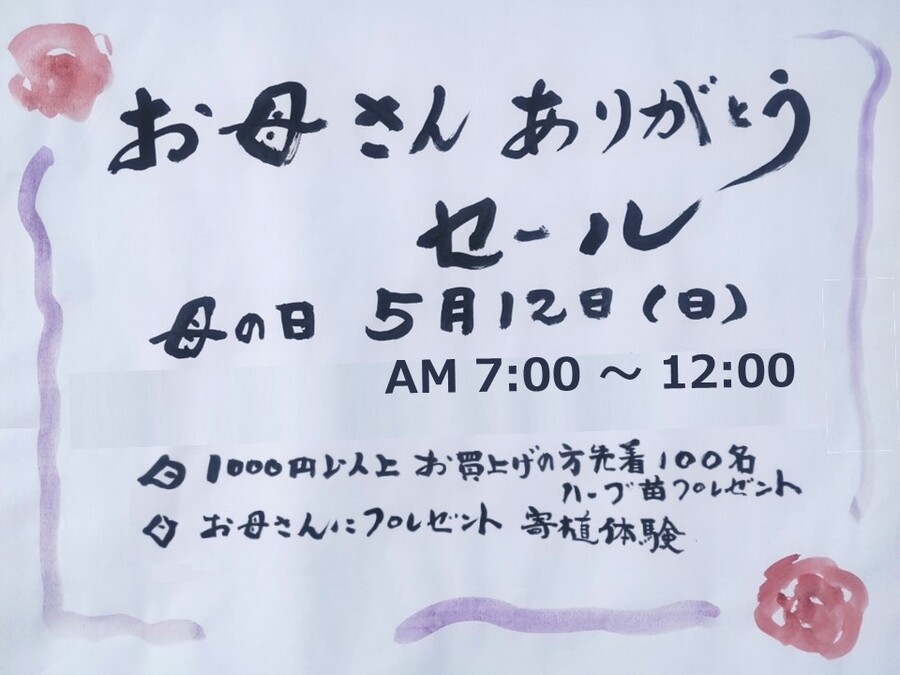 お母さん ありがとう
セール
母の日 5月12日(日)
AM 7:00 ～ 12:00
1000円以上 お買上げの方先着100名
ハーブ苗プレゼント
お母さんにプレゼント 寄植体験